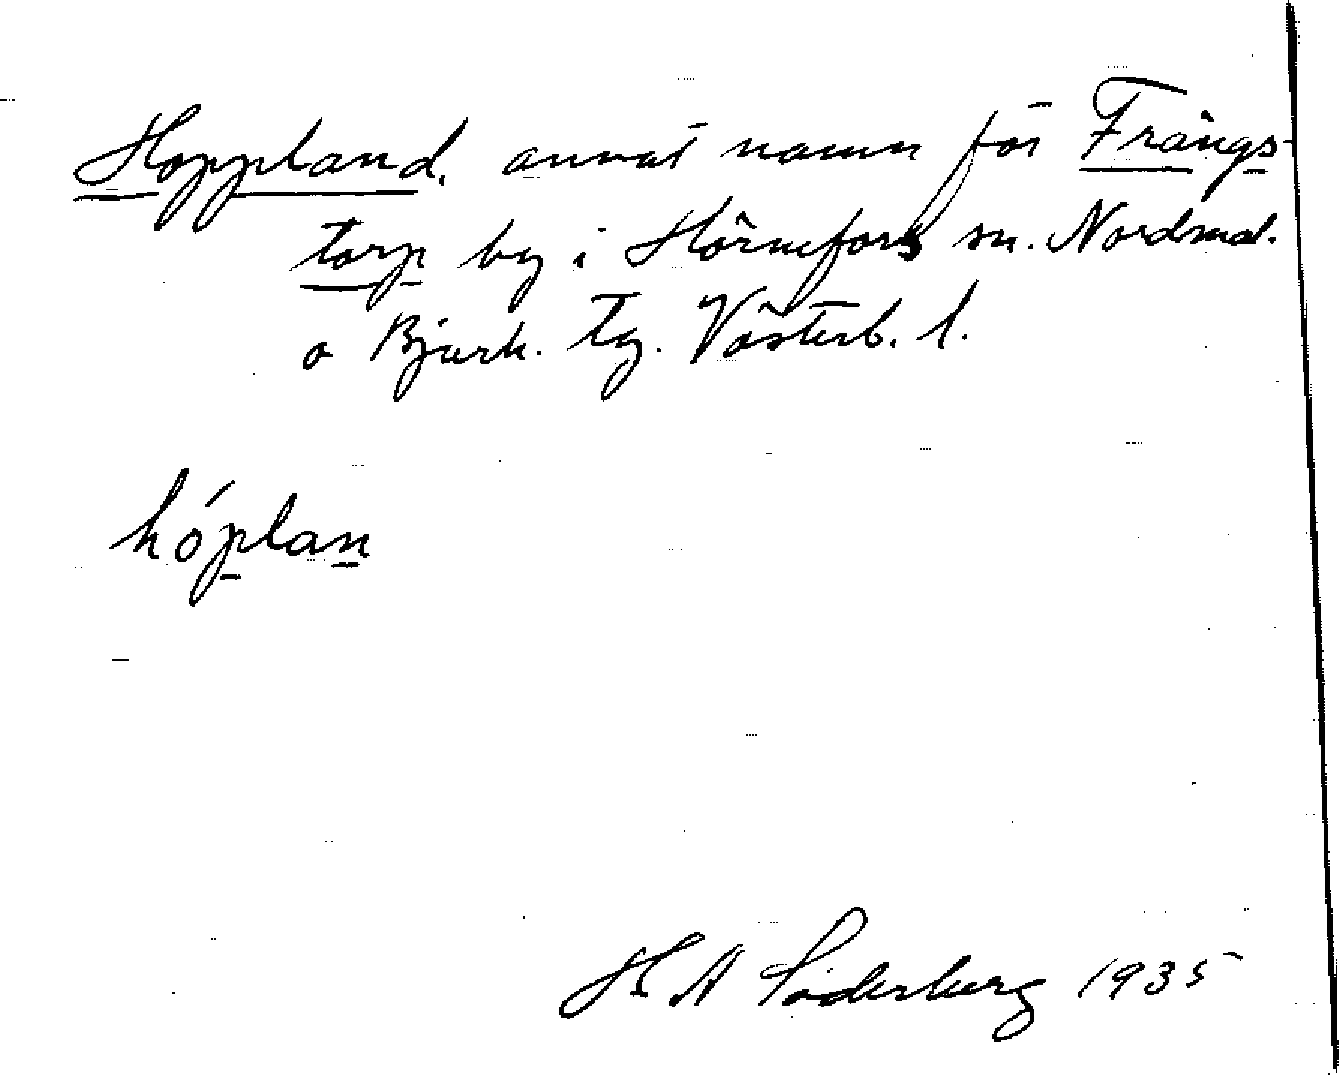 Hoppland. annat namn för Frängs-
torp by i Hörnefors sn. Nordmal.
o Bjurh. tg. Västerb. l.
hóplan
H A Söderberg 1935